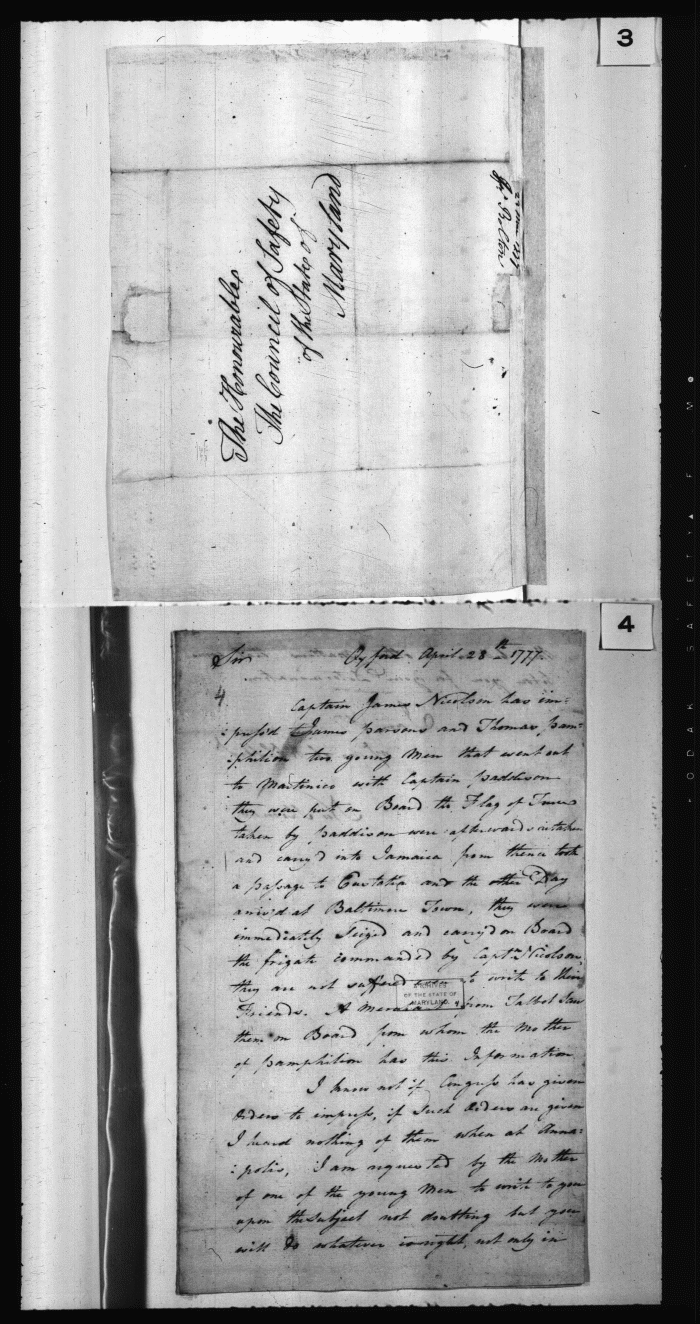 3
The Honourable
The Council of Safety
of the State of
Maryland
4
Sir Oxford April 28th 1777.
4
Captain James Nicolson has im=
:press'd James parsons and Thomas pam=
:philion two young Men that went out
to Martinico with Captain paddison
they were put on Board the Flag of Truce
taken by paddison were afterwards retaken
and carry'd into Jamaica from thence took
a passage to Eustatia and the other Day
arriv'd at Baltimore Town, they were
immediately Seized and carry'd on Board
the frigate commanded by Captn Nicolson,
they are not suffered to write to their
Friends. A from Talbot Saw
them on Board from whom the Mother
of pamphilion has this Information
I know not if Congress has given
Orders to impress, if Such Orders are given
I heard nothing of them when at Anna=
:polis, I am requested by the Mother
of one of the young Men to write to you
upon the Subject not doubting but you
will do whatever is right, not only in
OF THE STATE OF
MARYLAND